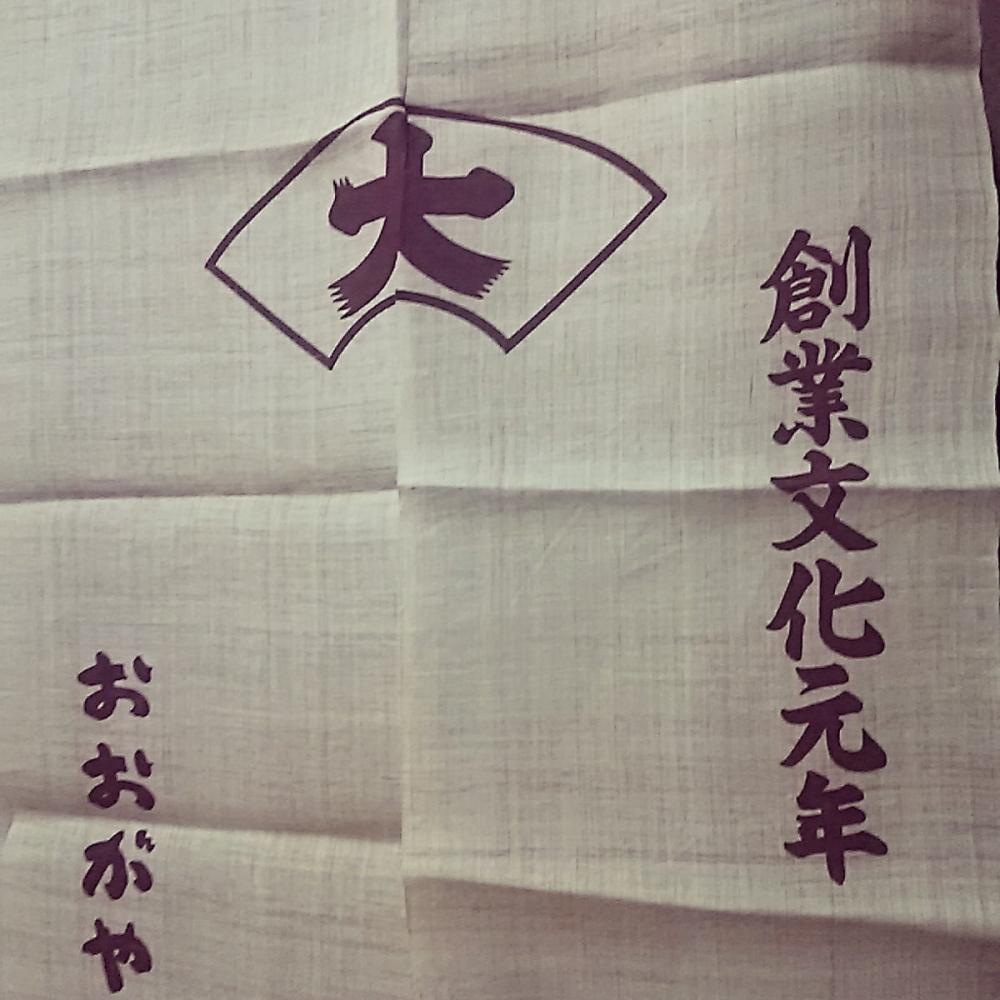 創業文化元年
大
おおがや